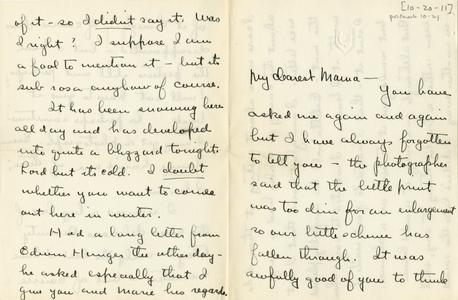 of it - so I didn't say it. Was
I right? I suppose I am
a fool to mention it - but it's
sub rosa anyhow of course.
It has been snowing here
all day and has developed
into quite a blizzard tonight.
Lord but its cold. I doubt
whether you want to come
out here in winter.
Had a long letter from
Edwin the other day -
he asked especially that I
give you and Marie his regards.
[10-20-11]
postmark 10-21
My dearest Mama -
You have
asked me again and again
but I have always forgotten
to tell you - the photographer
said that the little print
was too dim for an enlargement
so our little scheme has
fallen through. It was
awfully good of you to think